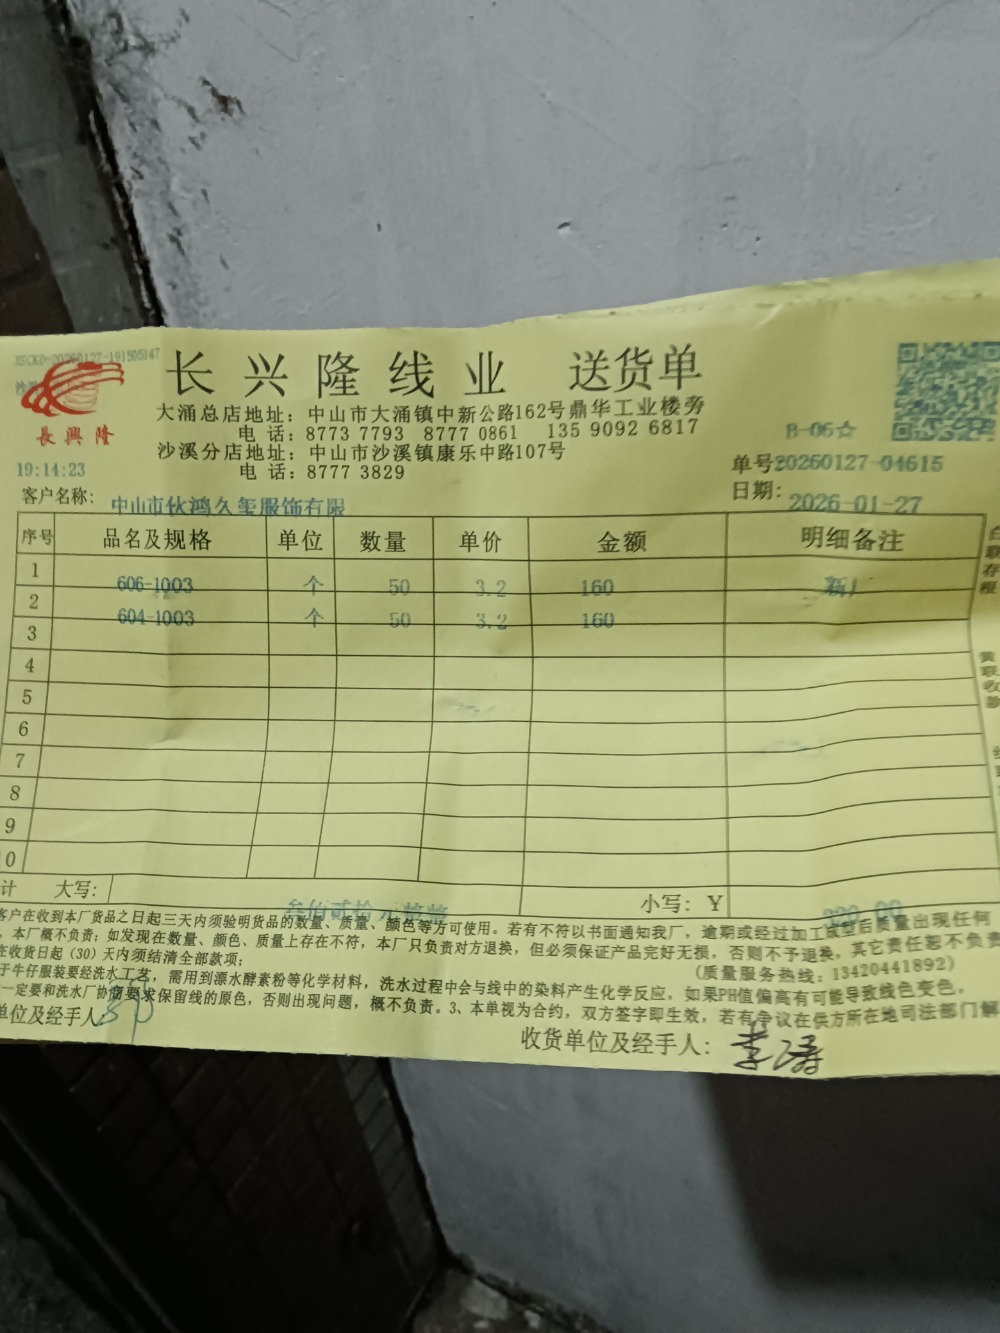 XSCKD-20260127-191505147
长兴隆线业 送货单
長興隆
大涌总店地址：中山市大涌镇中新公路162号鼎华工业楼旁
电 话：8773 7793 8777 0861 135 9092 6817
沙溪分店地址：中山市沙溪镇康乐中路107号
电 话：8777 3829
B-06☆
19:14:23
单号20260127-04615
客户名称：中山市伙鸿久玺服饰有限
日期：2026-01-27
序号 品名及规格 单位 数量 单价 金额 明细备注
1 606-1003 个 50 3.2 160 新厂
2 604-1003 个 50 3.2 160
3
4
5
6
7
8
9
0
计 大写：叁佰贰拾元整 小写：Y 320.00
客户在收到本厂货品之日起三天内须验明货品的数量、质量、颜色等方可使用。若有不符以书面通知我厂，逾期或经过加工成型后质量出现任何
，本厂概不负责；如发现在数量、颜色、质量上存在不符，本厂只负责对方退换，但必须保证产品完好无损，否则不予退换，其它责任恕不负责
在收货日起（30）天内须结清全部款项；
（质量服务热线：13420441892）
于牛仔服装要经洗水工艺，需用到漂水酵素粉等化学材料，洗水过程中会与线中的染料产生化学反应，如果PH值偏高有可能导致线色变色，
一定要和洗水厂协商要求保留线的原色，否则出现问题，概不负责。3、本单视为合约，双方签字即生效，若有争议在供方所在地司法部门解
单位及经手人
收货单位及经手人：李涛
白联存根
黄联收款